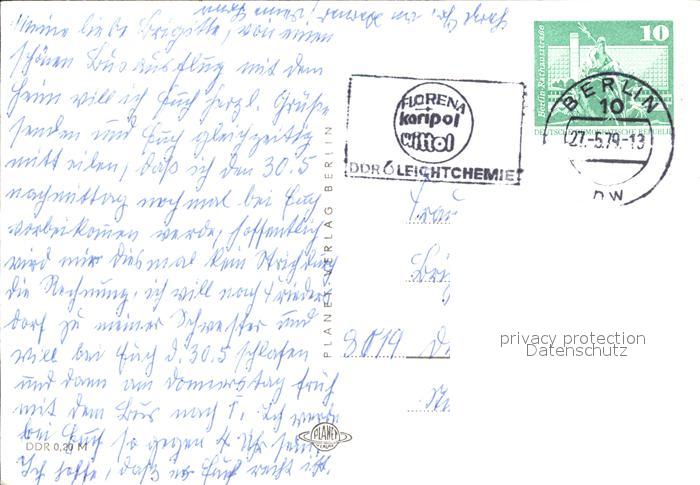 Meine liebe Brigitte, von einem
schönen Busausflug mit dem
Heim will ich Euch herzl. Grüße
senden und Euch gleichzeitig
mitteilen, daß ich den 30.5
nachmittag nochmal bei Euch
vorbeikommen werde, hoffentlich
wird mir diesmal kein Strich durch
die Rechnung, ich will nach Frieders
dorf zu meiner Schwester und
will bei Euch d. 30.5 schlafen
und dann am Donnerstag früh
mit dem Bus nach F. Ich werde
bei Euch so gegen 4 Uhr sein,
Ich hoffe, daß es Euch recht ist.
FLORENA
karipol
Wittol
DDR LEICHTCHEMIE
10
Berlin-Rathausstraße
DEUTSCHE DEMOKRATISCHE REPUBLIK
BERLIN
10
27.-5.79.-13
nw
PLANET-VERLAG BERLIN
Frau
Brig
8019 D
privacy protection
Datenschutz
PLANET
DDR 0,20 M